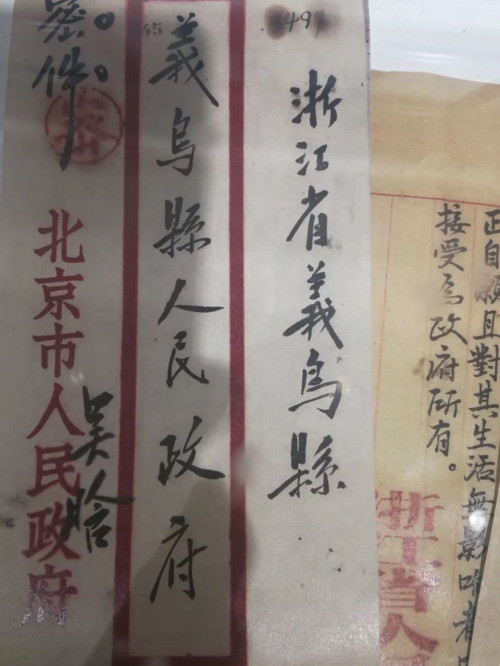 49
浙江省義烏縣
45
義烏縣人民政府
密。件。
北京市人民政府
吴晗
正自願且對其生活無影响者
接受為政府所有。
浙江省人